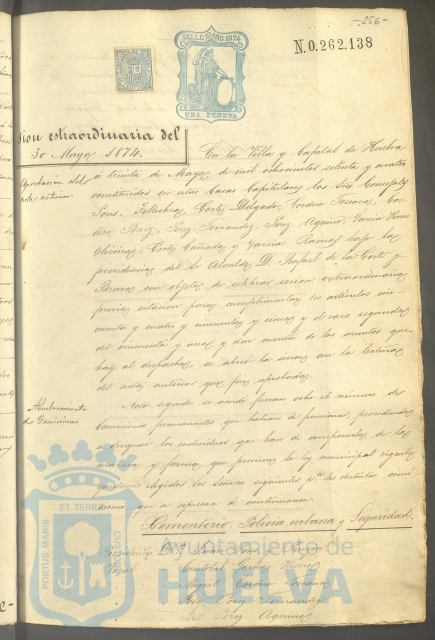 -256-
SELLO 11º AÑO 1874
UNA PESETA
N.0.262.138
sion extraordinaria del
30 Mayo 1874.
En la Villa y Capital de Huelva
Aprobacion del
acta anterior
á treinta de Mayo de mil ochocientos setenta y cuatro
constituidos en estas Casas Capitulares los Sres Concejales
Pons, Tellechea, Cortes, Delgado, Cordero Soriano, Cor-
dero Baez, Perez Fernandez, Perez Aquino, Garcia
Oliveira, Cortes Cañadas y Garcia Ramos bajo la
presidencia del Sr Alcalde D. Rafael de la Corte y
Bravo con objeto de celebrar sesion extraordinaria
previa citacion para cumplimentar los articulos cin-
cuenta y cuatro y cincuenta y cinco y el caso segundo
del cincuenta y uno y dar cuenta de los asuntos que
hay al despacho, se abrió la sesion con la lectura
del acta anterior que fue aprobada.
Nombramiento
de Comisiones
Acto seguido se acordó fueran ocho el número de
comisiones permanentes que habian de funcionar, procediendo
á designar los individuos que han de componerlas de la
manera y forma que previene la ley municipal vigente,
quedando elegidos los Señores siguientes pª las distintas comi-
siones que se expresa á continuacion.
Cementerio. Policia urbana y Seguridad.
Cristobal Garcia
Miguel Cordero Soriano
José Perez Fernandez
José Perez Aquino
PORTUS MARIS ET TERRAE CUSTODIA
Ayuntamiento de
HUELVA